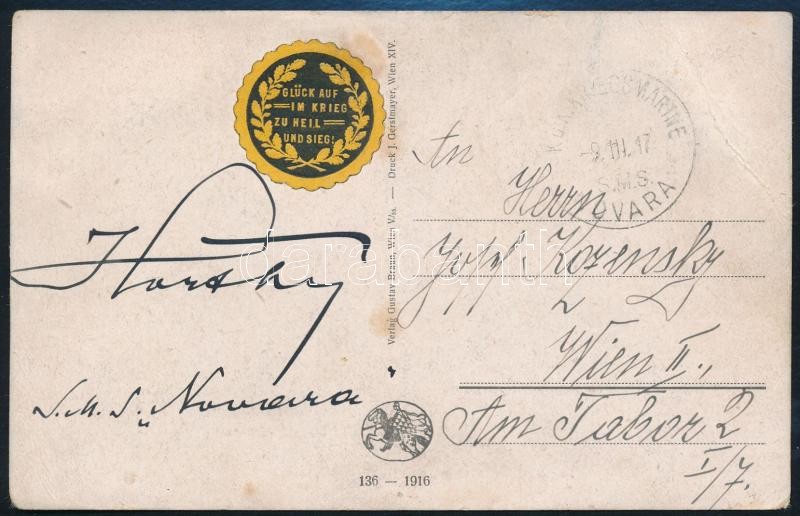 GLÜCK AUF
IM KRIEG
ZU HEIL
UND SIEG!
Horthy
S.M.S. „Novara"
Verlag Gustav Braun, Wien — Druck J. Gerstmayer, Wien XIV.
136 — 1916
K.U.K. KRIEGSMARINE
-9.III.17
S.M.S.
NOVARA
An
Herrn
Josef Kozensky
Wien II.,
Am Tabor 2
I/7.
darabanth